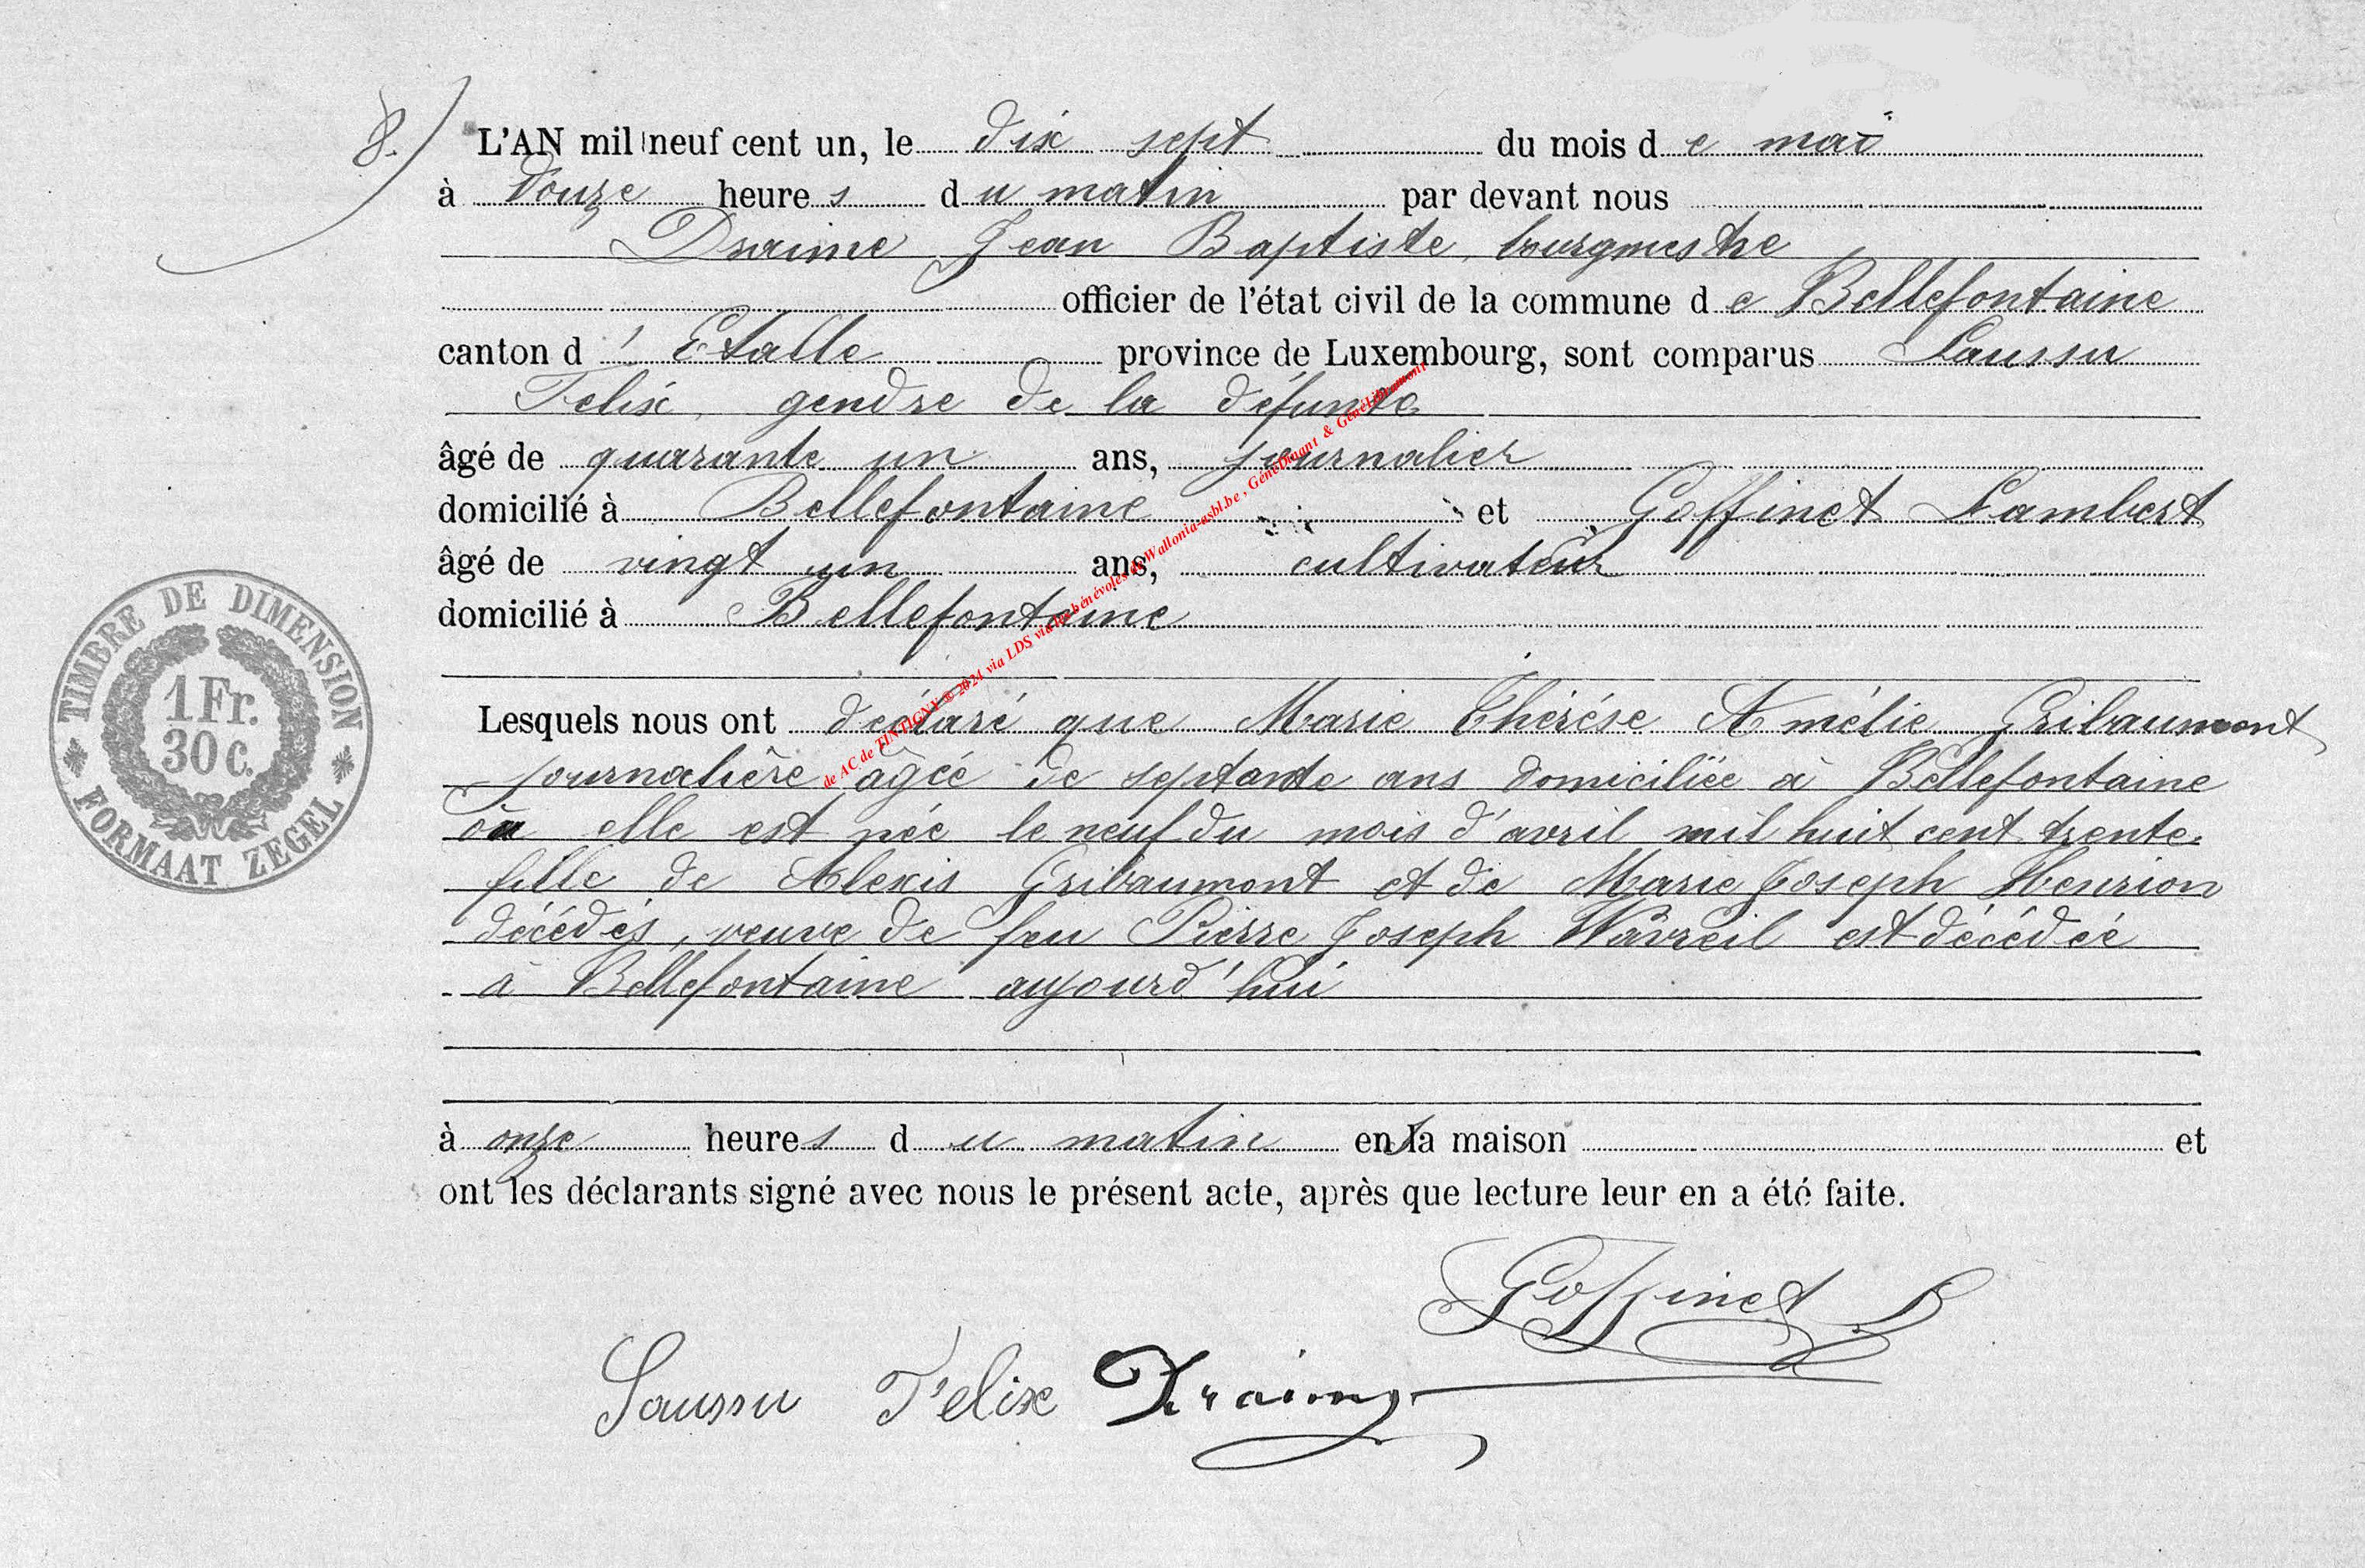 8.) L'AN mil neuf cent un, le dix sept du mois d e mai
à douze heure s d u matin par devant nous
Draime Jean Baptiste, bourgmestre
officier de l'état civil de la commune d e Bellefontaine
canton d ' Etalle province de Luxembourg, sont comparus Saussu
Felix, gendre de la défunte
âgé de quarante un ans, journalier
domicilié à Bellefontaine et Goffinet Lambert
âgé de vingt un ans, cultivateur
domicilié à Bellefontaine
TIMBRE DE DIMENSION
1 Fr.
30 c.
FORMAAT ZEGEL
Lesquels nous ont déclaré que Marie Thérèse Amélie Gribaumont
journalière âgée de septante ans domiciliée à Bellefontaine
où elle est née le neuf du mois d'avril mil huit cent trente.
fille de Alexis Gribaumont et de Marie Joseph Henrion
décédés, veuve de feu Pierre Joseph Wavreil est décédée
à Bellefontaine aujourd'hui
à onze heure s d u matin en sa maison et
ont les déclarants signé avec nous le présent acte, après que lecture leur en a été faite.
Goffinet L
Saussu Felix Draime
de AC de TINTIGNY © 2024 via LDS via les bénévoles de Wallonia-asbl.be , GénéDinant & GénéLibramont